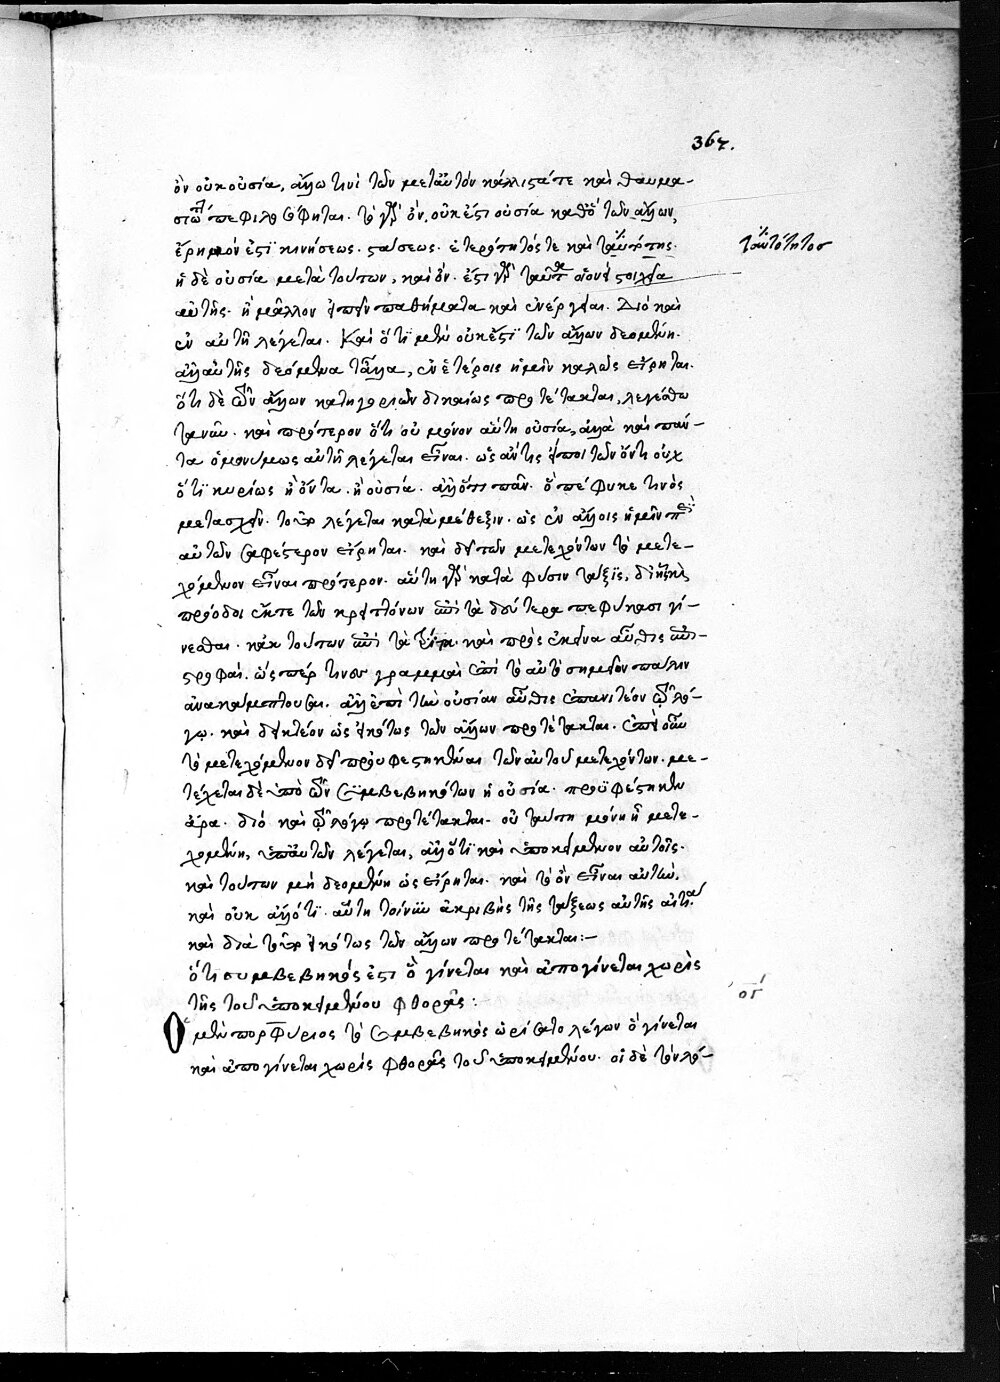 367.
ὂν οὐκ οὐσία, ἄλλω τινὶ τῶν μετ' αὐτὸν κάλλιστά τε καὶ θαυμα-
πεφιλοσόφηται. τὸ γὰρ ὂν, οὐκ ἔστι οὐσία καθὸ τῶν ἄλλων,
ἔρημον ἐστὶ κινήσεως. στάσεως. ἑτερότητός τε καὶ ταυτότητος.
ταὐτότητος
ἡ δὲ οὐσία μετὰ τούτων, καὶ ὄν. ἔστι γὰρ ταῦτα οἱονεὶ στοιχεῖα
αὐτῆς. ἢ μᾶλλον εἰπεῖν παθήματα καὶ ἐνέργειαι. Διὸ καὶ
ἐν αὐτῆ λέγεται. Καὶ ὅτι μὲν οὐκ ἔστι τῶν ἄλλων δεομένη.
ἀλλ' αὐτῆς δεόμενα τἆλλα, ἐν ἑτέροις ἡμῖν καλῶς εἴρηται.
ὅτι δὲ τῶν ἄλλων κατηγοριῶν δικαίως προτέτακται, λεγέσθω
τανῦν. καὶ πρότερον ὅτι οὐ μόνον αὕτη οὐσία, ἀλλὰ καὶ πάν-
τα ὁμωνύμως αὐτῆ λέγεται εἶναι. ὡς ἄν τις εἴποι τῶν ὄντων οὐχ
ὅτι κυρίως ἢ ὄντα. ἢ οὐσία. ἀλλ' ὅτι πᾶν. ὃ πέφυκε τινὸς
μετασχεῖν. τοῦτο λέγεται κατὰ μέθεξιν. ὡς ἐν ἄλλοις ἡμῖν περὶ
αὐτῶν σαφέστερον εἴρηται. καὶ δεῖ τῶν μετεχόντων τὸ μετε-
χόμενον εἶναι πρότερον. αὕτη γὰρ κατὰ φύσιν τάξις,
πρόοδοι ἔκ τε τῶν κρειττόνων ἐπὶ τὰ δεύτερα πεφύκασι γί-
νεσθαι. κἀκ τούτων ἐπὶ τὰ τρίτα. καὶ πρὸς ἐκεῖνα αὖθις ἐπι-
στροφαί. ὥσπερ τινες γραμμαὶ ἐπὶ τὸ αὐτὸ σημεῖον πάλιν
ἀνακάμπτουσαι. ἀλλ' ἐπὶ τὴν οὐσίαν αὖθις ἐπανιτέον τῷ λό-
γῳ. καὶ δεικτέον ὡς εἰκότως τῶν ἄλλων προτέτακται. ἐπεὶ οὖν
τὸ μετεχόμενον δεῖ προϋφεστηκέναι τῶν αὐτοῦ μετεχόντων. με-
τέχεται δὲ ὑπὸ τῶν συμβεβηκότων ἡ οὐσία. προϋφέστηκεν
ἄρα. διὸ καὶ τῷ λόγῳ προτέτακται. οὐ ταύτη μόνη ἣ μετε-
χομένη, ὑπ' αὐτῶν λέγεται, ἀλλ' ὅτι καὶ ὑποκείμενον αὐτοῖς.
καὶ τούτων μὴ δεομένη ὡς εἴρηται. καὶ τὸ ὂν εἶναι αὐτὴν.
καὶ οὐκ ἄλλό τι. αὕτη τοίνυν ἀκριβὴς τῆς τάξεως αὐτῆς αἰτία
καὶ διὰ τοῦτο εἰκότως τῶν ἄλλων προτέτακται:–
ὅτι συμβεβηκός ἐστι ὃ γίνεται καὶ ἀπογίνεται χωρὶς
τῆς τοῦ ὑποκειμένου φθορᾶς:
Ὁ μὲν πορφύριος τὸ συμβεβηκὸς ὡρίσατο λέγων ὃ γίνεται
καὶ ἀπογίνεται χωρὶς φθορᾶς τοῦ ὑποκειμένου. οἱ δὲ τὸν λό-